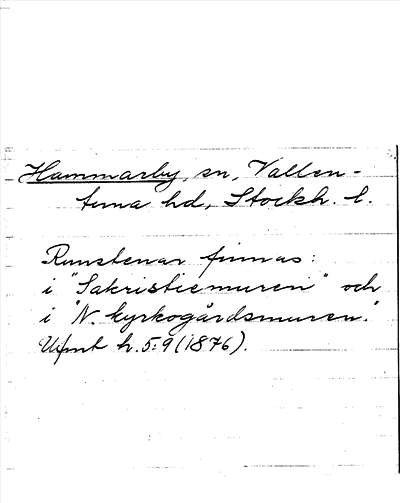 Hammarby, sn, Vallen-
tuna hd, Stockh. l.
Runstenar finnas:
i "Sakristiemuren" och
i "N. kyrkogårdsmuren."
Ufmt h. 5:9 (1876).